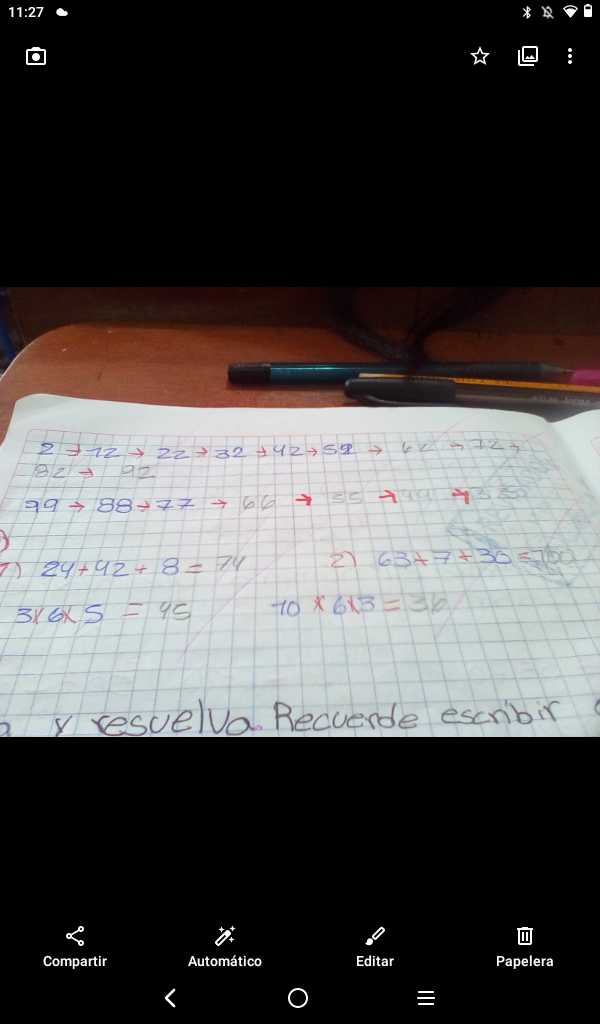 11:27
2 → 12 → 22 → 32 → 42 → 52 → 62 → 72 →
82 → 92
99 → 88 → 77 → 66 → 55 → 44 → 33
1) 24 + 42 + 8 = 74 2) 63 + 7 + 30 = 100
3 x 6 x 5 = 45 10 x 6 x 3 = 36
y resuelva. Recuerde escribir
Compartir Automático Editar Papelera